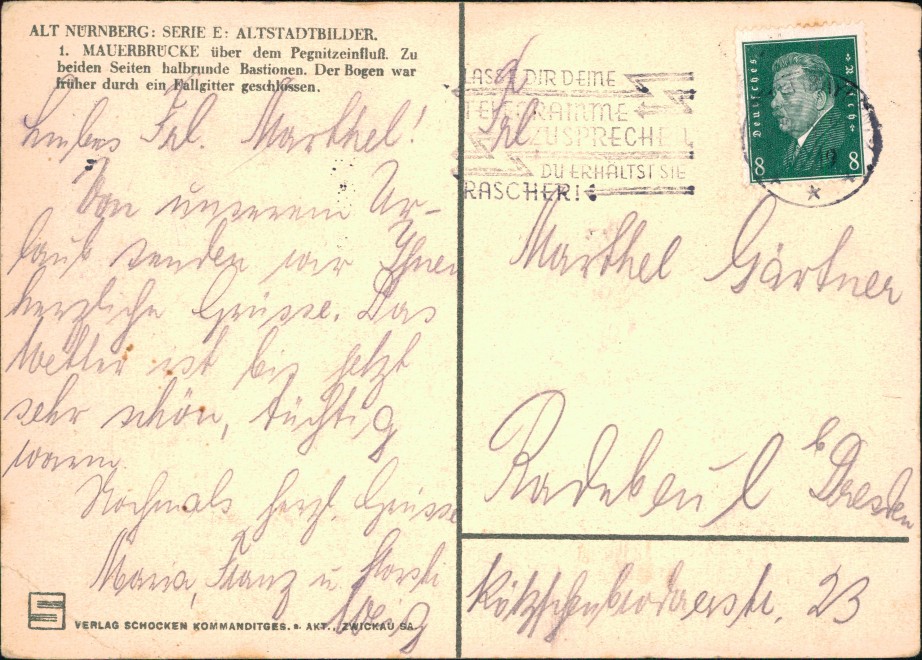 ALT NÜRNBERG: SERIE E: ALTSTADTBILDER.
1. MAUERBRÜCKE über dem Pegnitzeinfluß. Zu
beiden Seiten halbrunde Bastionen. Der Bogen war
früher durch ein Fallgitter geschlossen.
Liebes Frl. Marthel!
Von unserem Ur-
laub senden wir Ihnen
herzliche Grüsse. Das
Wetter ist bis jetzt
sehr schön, tüchtig
warm.
Nochmals herzl. Grüsse
Maria, Franz u
VERLAG SCHOCKEN KOMMANDITGES. a. AKT., ZWICKAU SA.
LASSE DIR DEINE
TELEGRAMME
ZUSPRECHEN
DU ERHÄLTST SIE
RASCHER!
Deutsches Reich
8 8
Frl
Marthel Gärtner
Radebeul b Dresden
Kötzschenbrodaerstr. 23